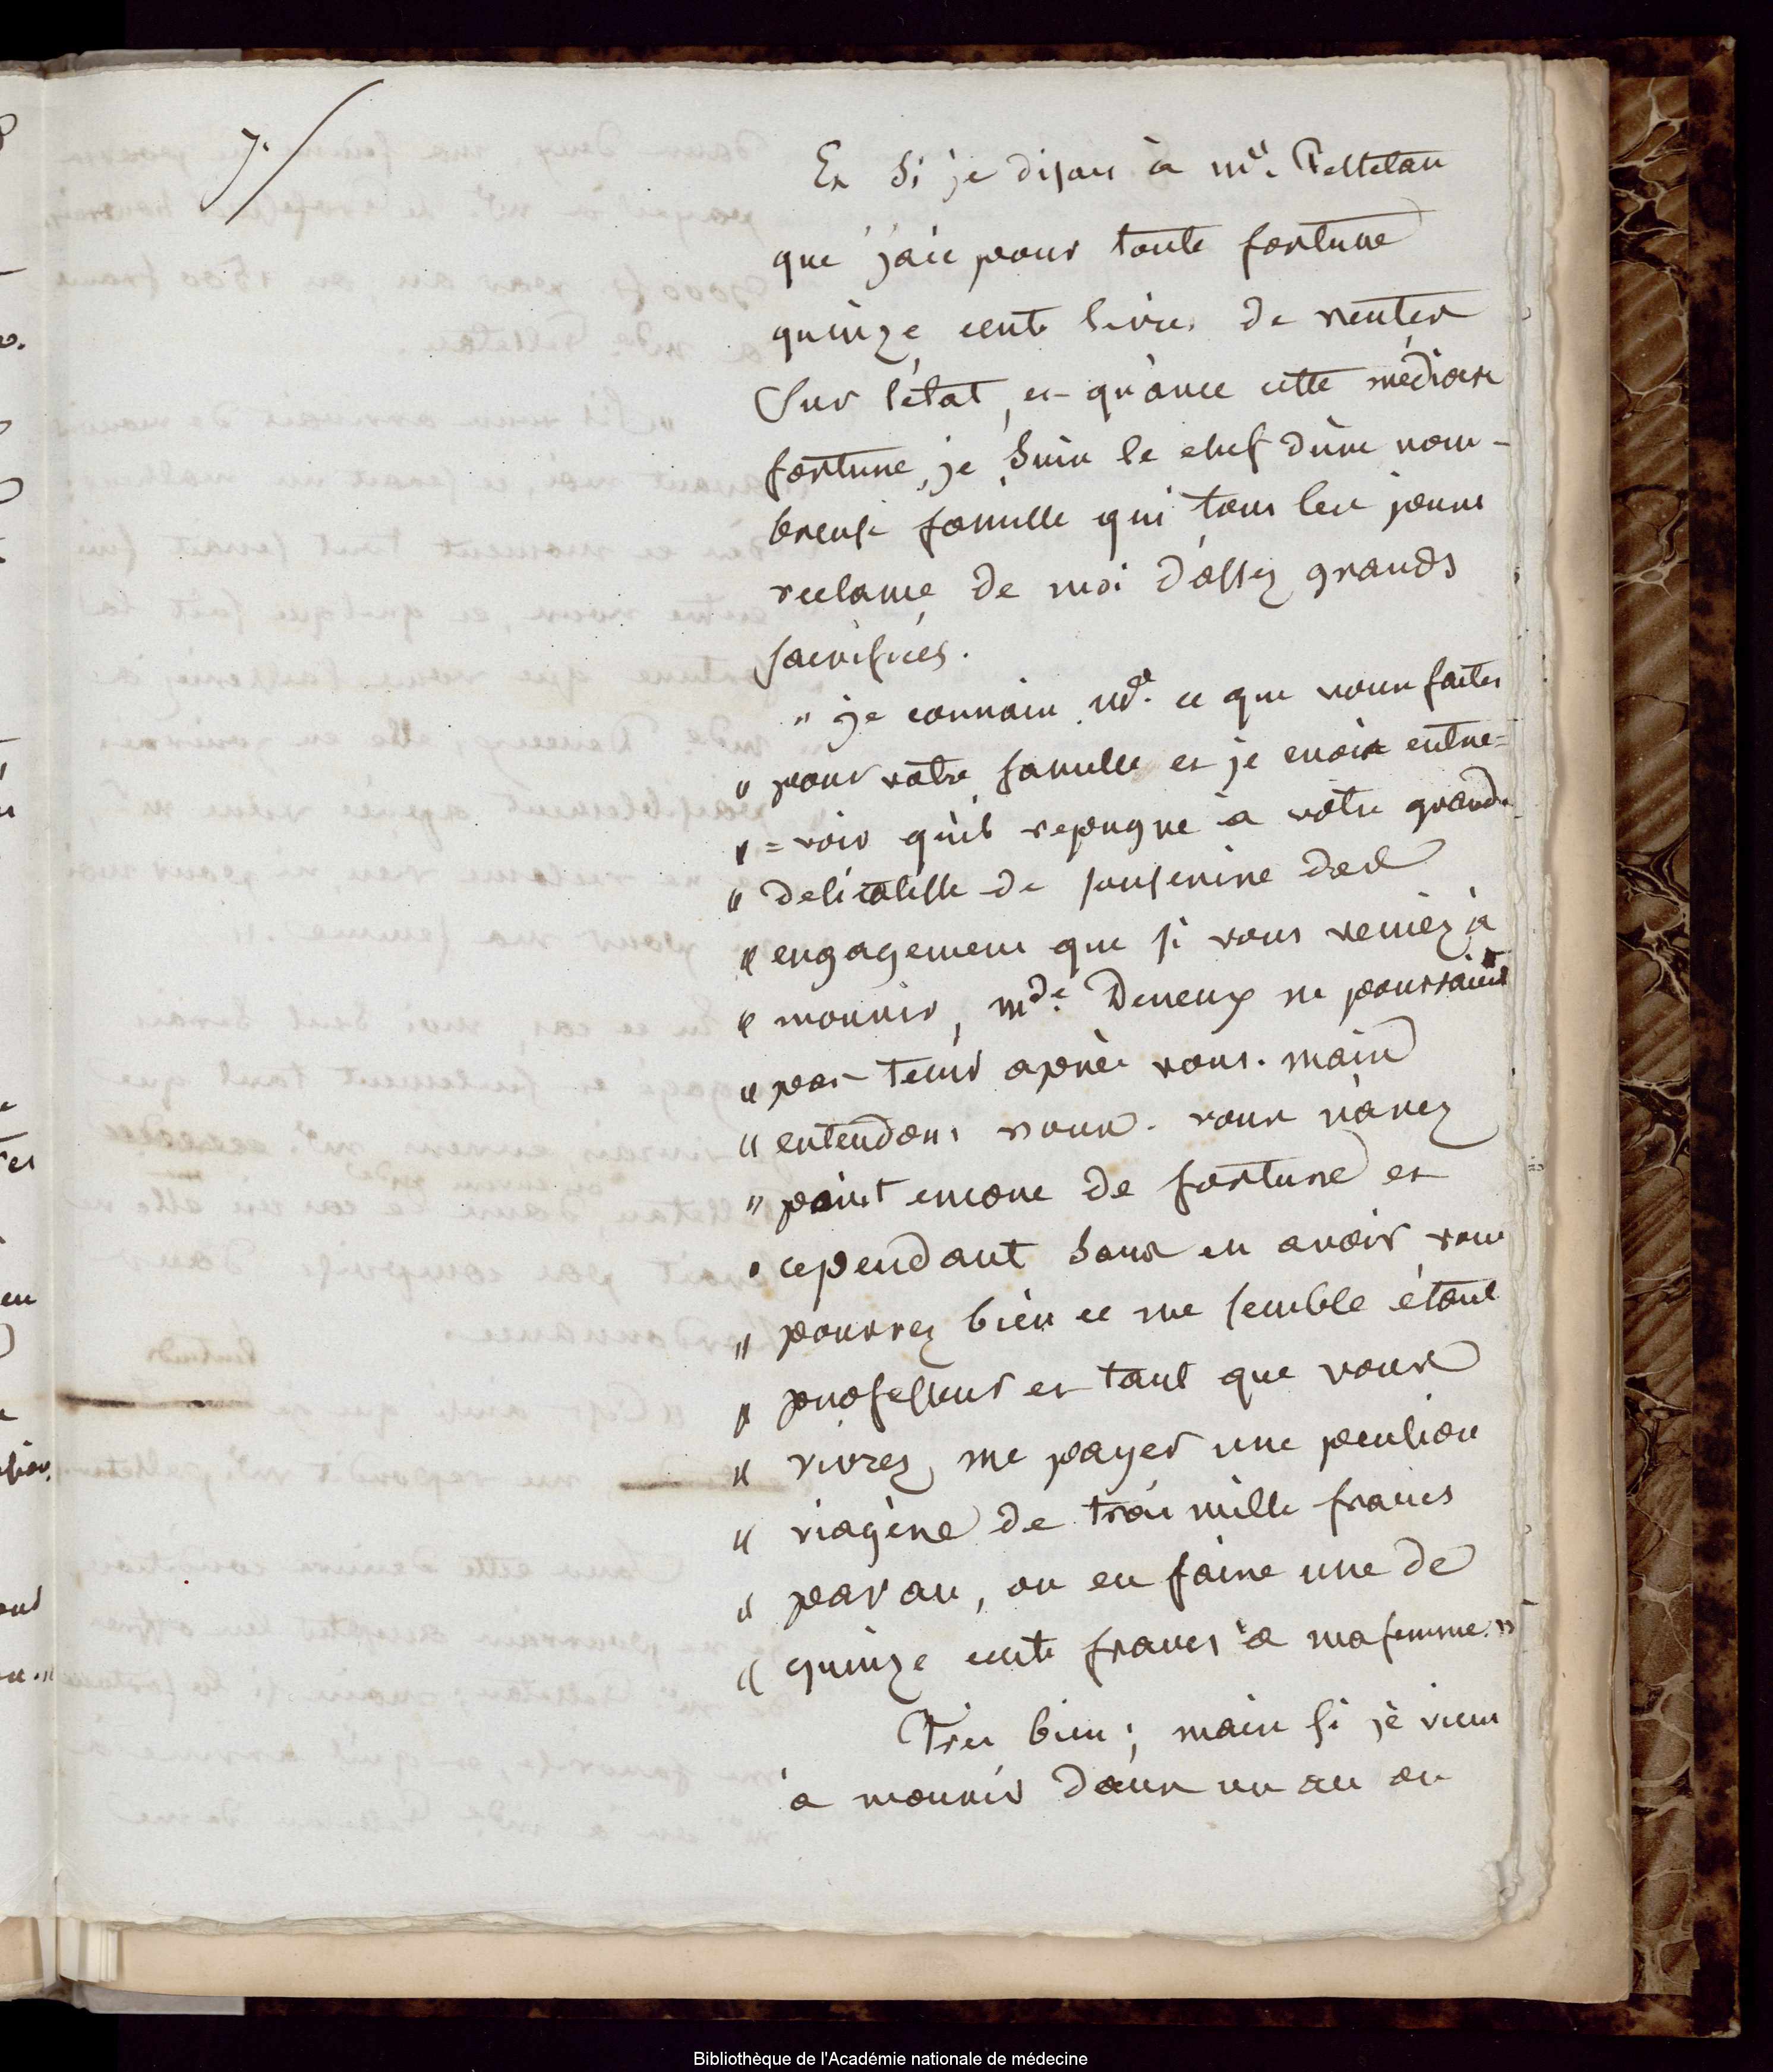 7./
Et si je disais à mr. Pelletan
que j'aie pour toute fortune
quinze cents livres de rentes
sur l'état, et qu'avec cette médiocre
fortune, je suis le chef d'une nom-
breuse famille qui tous les jours
reclame de moi d'assez grands
sacrifices.
" je connais, Mr. ce que vous faites
" pour votre famille et je crois entre=
" =voir qu'il repugne à votre grande
" delicatesse de souscrire des
" engagemens que si vous veniez à
" mourir, mde. Deneux ne pourrait
" pas tenir après vous. mais
" entendons nous. vous n'avez
" point encore de fortune et
" cependant sans en avoir vous
" pourrez bien ce me semble étant
" professeur et tant que vous
" vivrez, me payer une pension
" viagère de trois mille francs
" par an, ou en faire une de
" quinze cents francs à ma femme."
Très bien; mais si je viens
à mourir dans un an ou
Bibliothèque de l'Académie nationale de médecine